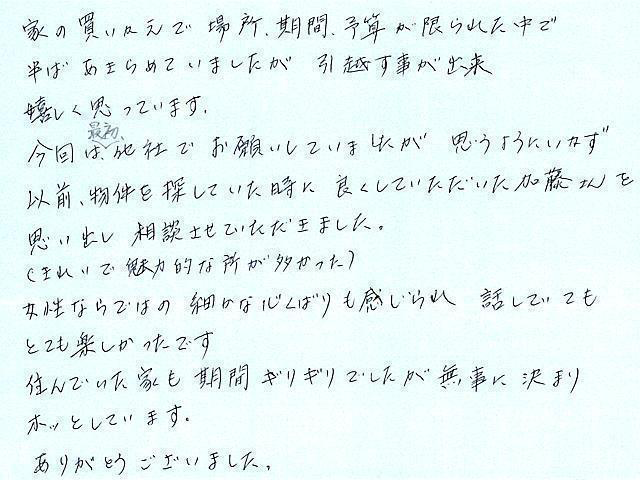 家の買いかえで場所、期間、予算が限られた中で
半ばあきらめていましたが 引越す事が出来
嬉しく思っています.
今回は最初、他社でお願いしていましたが 思うようにいかず
以前、物件を探していた時に良くしていただいた加藤さんを
思い出し相談させていただきました。
(きれいで魅力的な所が多かった)
女性ならではの細かな心くばりも感じられ 話していても
とても楽しかったです
住んでいた家も期間ギリギリでしたが無事に決まり
ホッとしています.
ありがとうございました。